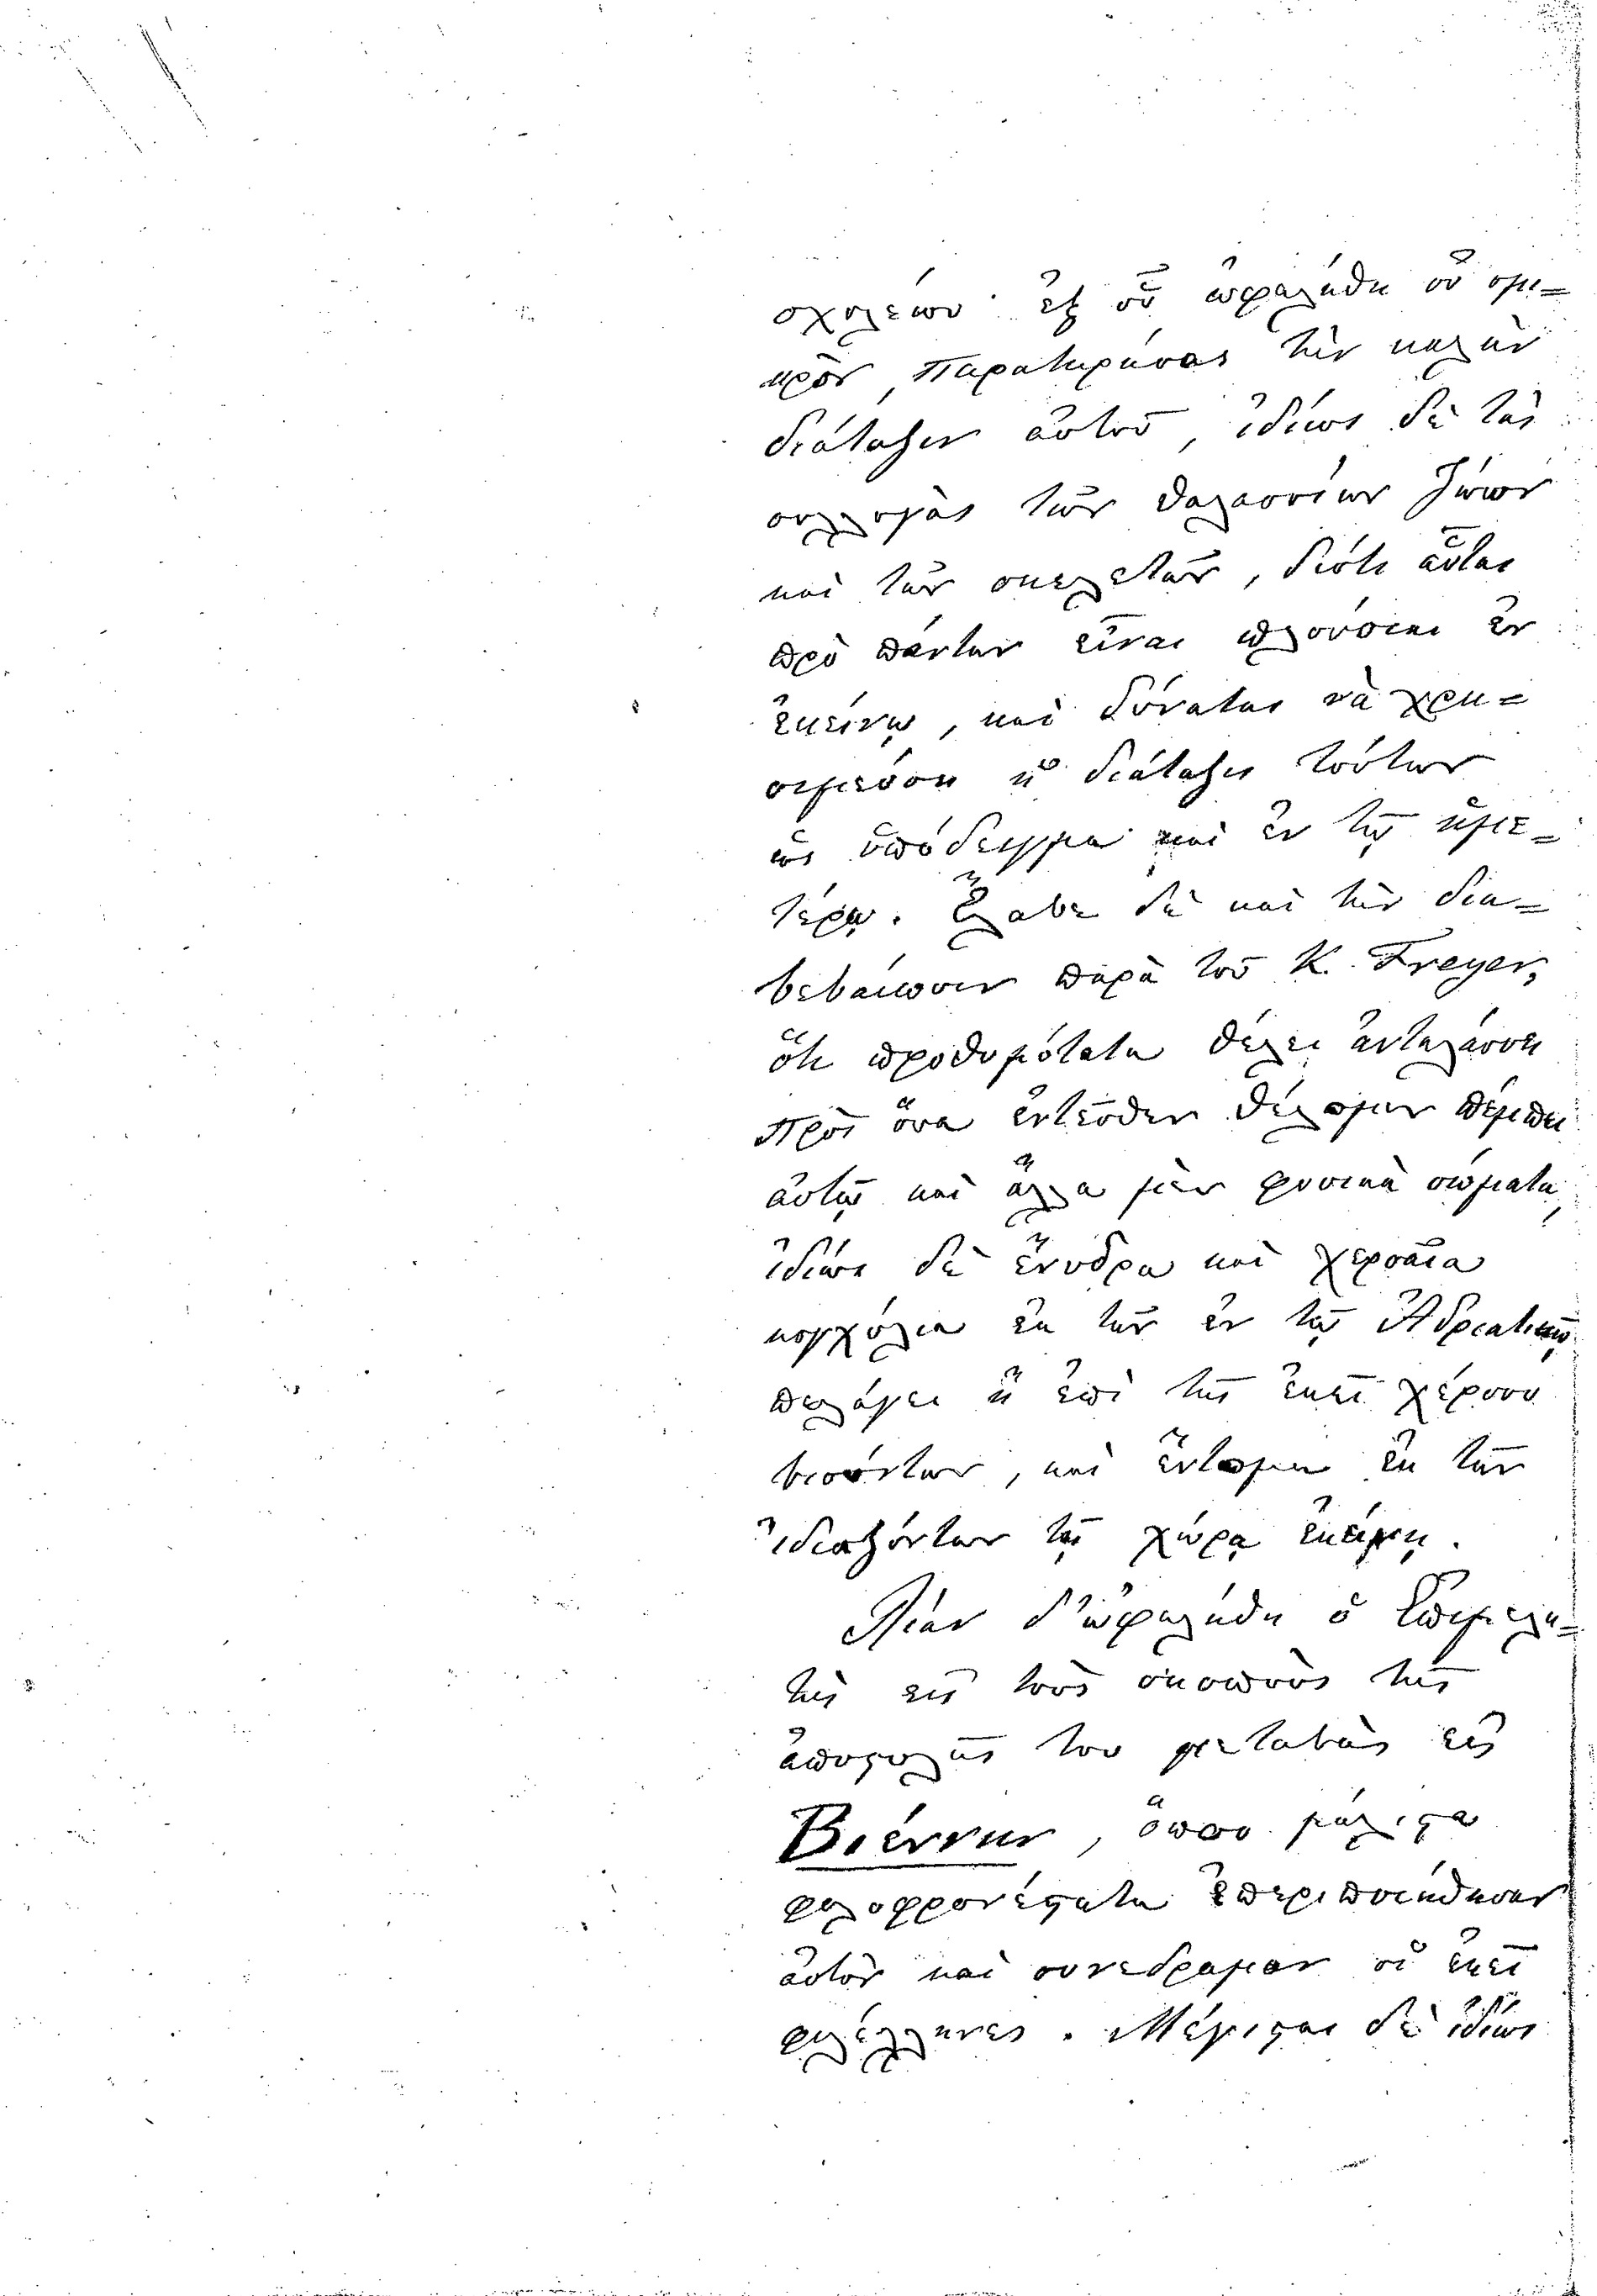 σχολείου· ἐξ οὗ ὠφελήθη οὐ σμι=
κρὸν, παρατηρήσας τὴν καλὴν
διάταξιν αὐτοῦ, ἰδίως δὲ τὰς
συλλογὰς τῶν θαλασσίων ζώων
καὶ τῶν σκελετῶν, διότι αὗται
πρὸ πάντων εἶναι πλούσιαι ἐν
ἐκείνῳ, καὶ δύναται νὰ χρη=
σιμεύσῃ ἡ διάταξις τούτων
ὡς ὑπόδειγμα καὶ ἐν τῷ ἡμε=
τέρῳ. Ἔλαβε δὲ καὶ τὴν δια=
βεβαίωσιν παρὰ τοῦ Κ. Freyer,
ὅτι προθυμότατα θέλει ἀνταλάσσῃ
πρὸς ὅσα ἐντεῦθεν θέλομεν πέμπει
αὐτῷ καὶ ἄλλα μὲν φυσικὰ σώματα,
ἰδίως δὲ ἔνυδρα καὶ χερσαῖα
κογχύλια ἐκ τῶν ἐν τῷ Ἀδριατικῷ
πελάγει ἢ ἐπὶ τῆς ἐκεῖ χέρσου
βιούντων, καὶ ἔντομα ἐκ τῶν
ἰδιαζόντων τῇ χώρᾳ ἐκείνῃ.
Λίαν δ' ὠφελήθη ὁ Ἐπιμελη=
τὴς εἰς τοὺς σκοποὺς τῆς
ἀποστολῆς του μεταβὰς εἰς
Βιέννην, ὅπου μάλιστα
φιλοφρονέστατα ἐπεριποιήθησαν
αὐτὸν καὶ συνέδραμον οἱ ἐκεῖ
φιλέλληνες. Μέγισται δὲ ἰδίως